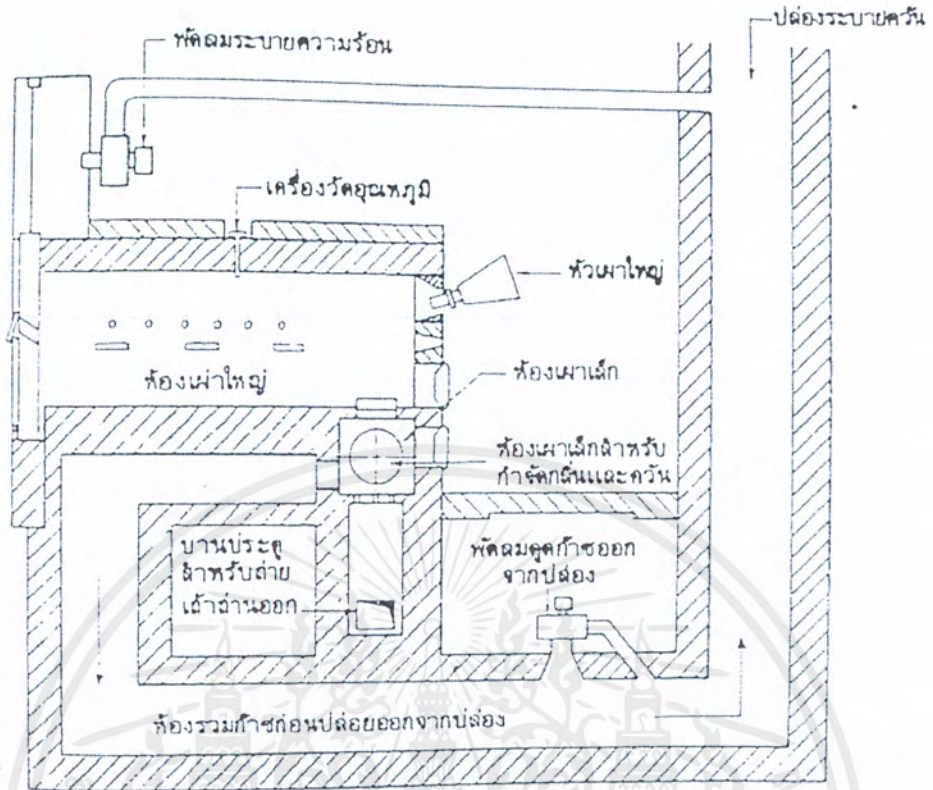 ปล่องระบายควัน
พัดลมระบายความร้อน
เครื่องวัดอุณหภูมิ
หัวเผาใหญ่
ห้องเผาใหญ่
ห้องเผาเล็ก
ห้องเผาเล็กสำหรับ
กำจัดกลิ่นและควัน
บานประตู
สำหรับถ่าย
เถ้าถ่านออก
พัดลมดูดก๊าซออก
จากปล่อง
ห้องรวมก๊าซก่อนปล่อยออกจากปล่อง